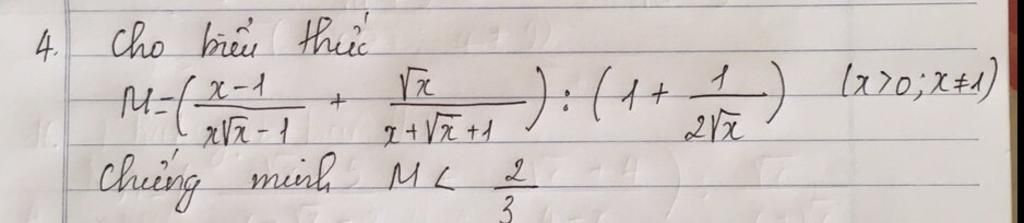 4. Cho biểu thức
M = ( (x-1)/(x√x - 1) + √x/(x+√x+1) ) : ( 1 + 1/(2√x) ) (x>0; x≠1)
Chứng minh M < 2/3